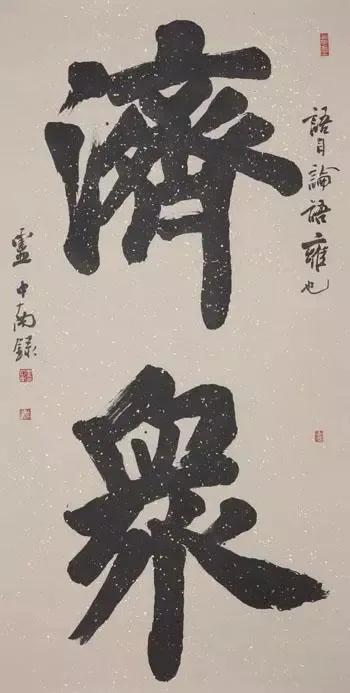 語自論語雍也
濟衆
盧中南錄